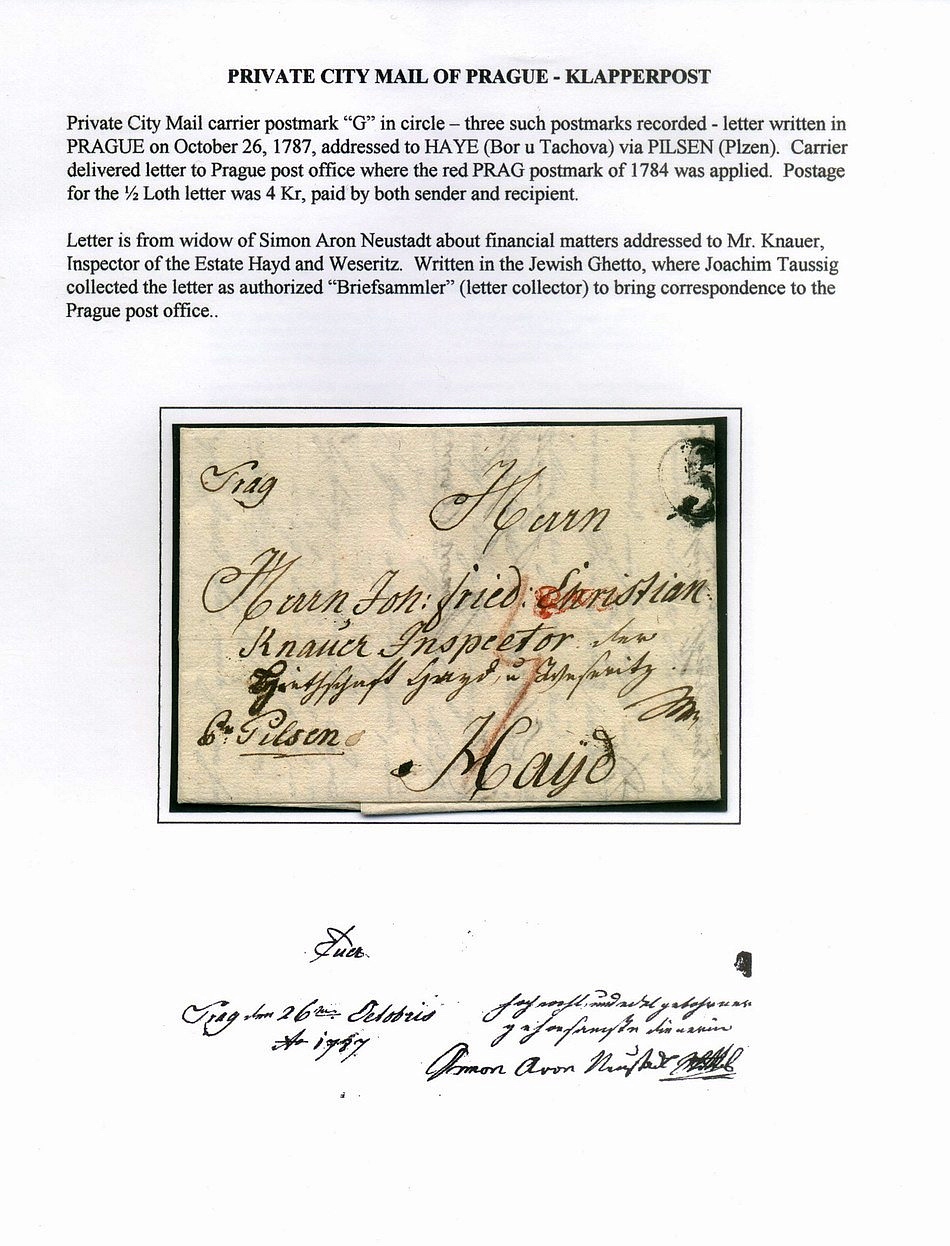 PRIVATE CITY MAIL OF PRAGUE - KLAPPERPOST
Private City Mail carrier postmark “G” in circle – three such postmarks recorded - letter written in
PRAGUE on October 26, 1787, addressed to HAYE (Bor u Tachova) via PILSEN (Plzen). Carrier
delivered letter to Prague post office where the red PRAG postmark of 1784 was applied. Postage
for the ½ Loth letter was 4 Kr, paid by both sender and recipient.
Letter is from widow of Simon Aron Neustadt about financial matters addressed to Mr. Knauer,
Inspector of the Estate Hayd and Weseritz. Written in the Jewish Ghetto, where Joachim Taussig
collected the letter as authorized “Briefsammler” (letter collector) to bring correspondence to the
Prague post office..
Prag
Herrn
Herrn Joh: fried: Christian
Knauer Inspector der
Hayd, u Weseritz
Pilsen
Hayd
Euer
Prag den 26ten Octobris
Ao 1787
hoch wohl und edel gebohrner
gehorsamste dienerin
Simon Aron Neustadl